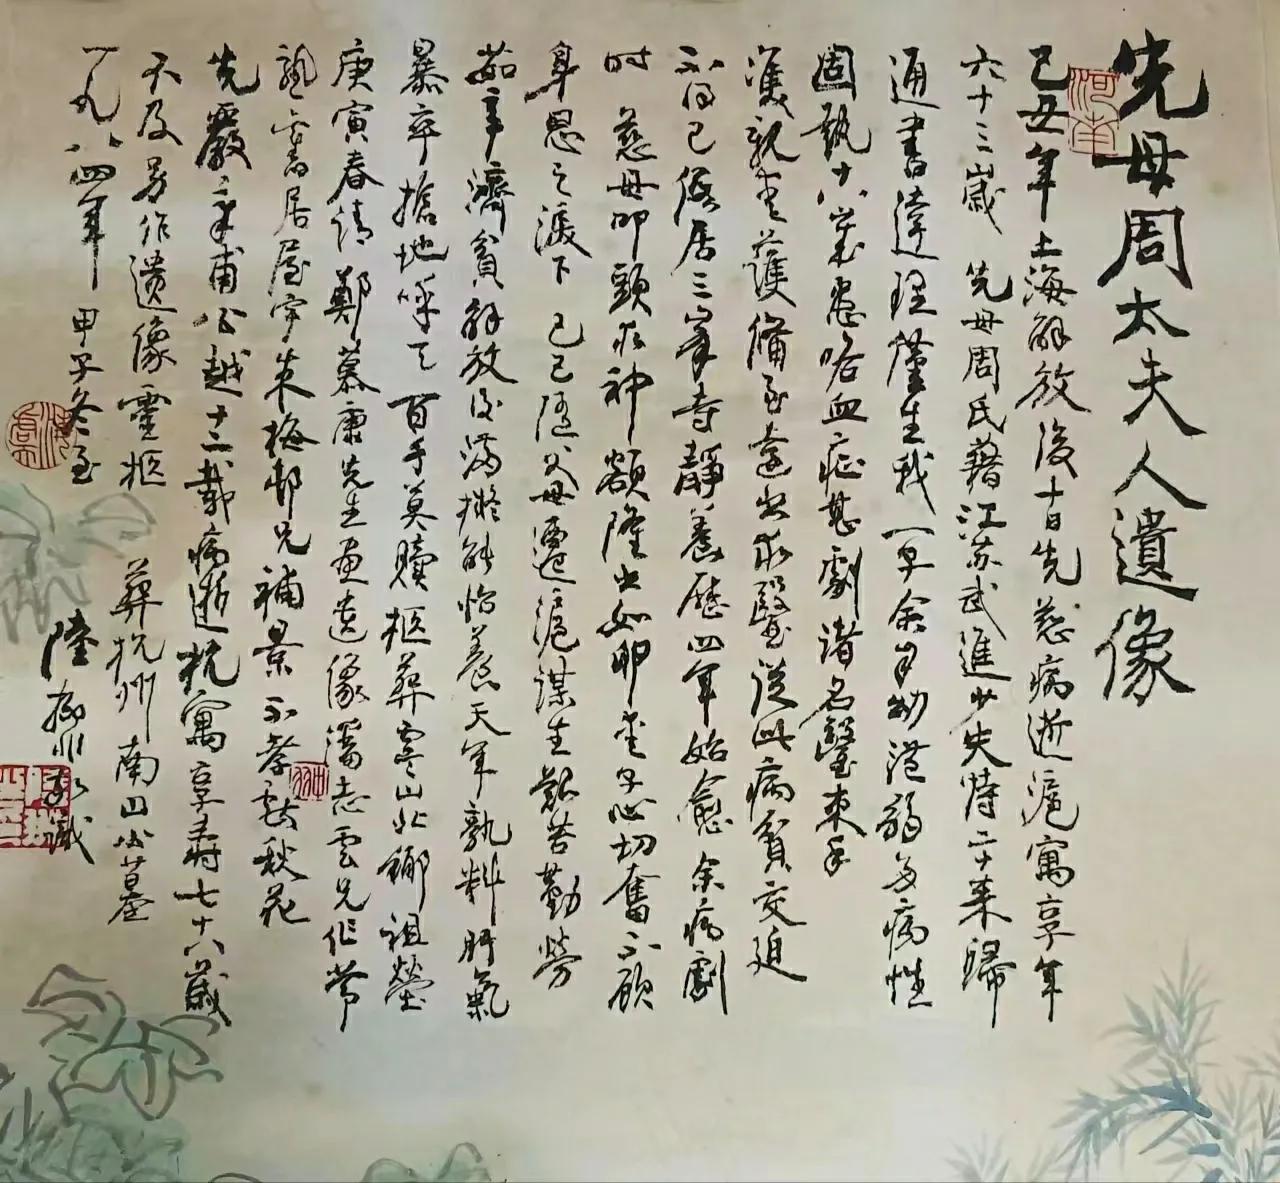 先母周太夫人遺像
己丑年上海解放後十日先慈病逝滬寓享年
六十三歲 先母周氏籍江苏武進少失恃二十来歸
通書達理僅生我一早余自幼孱弱多病性
固執十八歲患咯血症甚劇諸名醫束手
雙親愛護備至遠出求醫從此病貧交迫
不得已僑居三峯寺靜養歷四年始愈余病劇
時 慈母叩頭求神額隆出如卵愛子心切奮不顧
身思之淚下 己巳隨父母遷滬謀生艱苦勤勞
茹辛濟貧解放后滿擬能怡養天年孰料肝氣
暴卒搶地呼天百手莫贖柩葬雲山北鄉祖塋
庚寅春請鄭慕康先生画遺像潘志雲兄作裳
舊居屋宇朱梅邨兄補景不孝敬秋花
先嚴 甫公越十二載病逝杭寓享壽七十八歲
不及另作遺像靈柩 葬杭州南山公墓
一九八四年 甲子冬至 陸抑非敬識